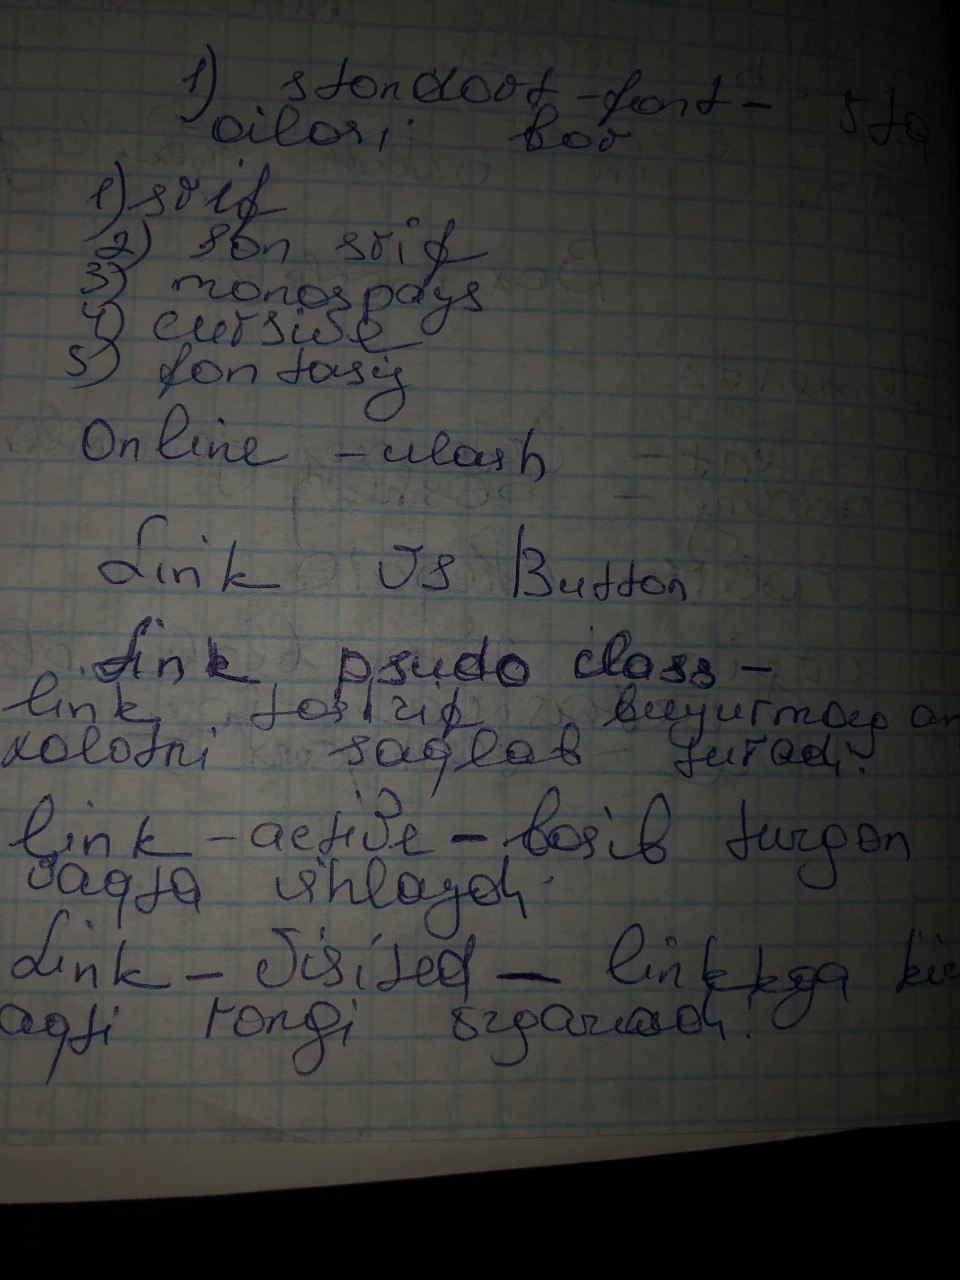 1) standart - font - 5 ta
oilasi bor
1) srif
2) san srif
3) monospays
4) cursive
5) fantasiy
Online - ulash
Link vs Button
Link psudo class -
link tashrif buyurmagan
xolatni saqlab turadi.
link - active - bosib turgan
vaqta ishlaydi.
Link - Visited - linkkga kir
aqti rangi